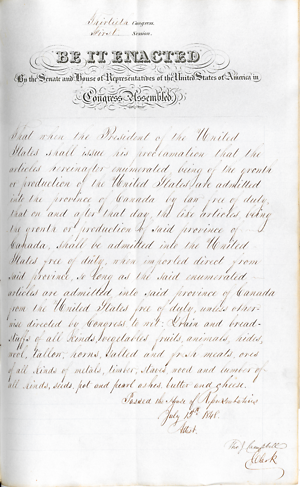 Thirtieth Congress.
First Session.
BE IT ENACTED
By the Senate and House of Representatives of the United States of America in
Congress Assembled,
That when the President of the United
States shall issue his proclamation that the
articles hereinafter enumerated, being of the growth
or production of the United States are admitted
into the province of Canada by law free of duty,
that on and after that day, the like articles, being
the growth or production of said province of
Canada, shall be admitted into the United
States free of duty, when imported direct from
said province, so long as the said enumerated
articles are admitted into said province of Canada
from the United States free of duty, unless other-
wise directed by Congress to wit: Grain and bread-
stuffs of all kinds, vegetables fruits, animals, hides,
wool, tallow, horns, salted and fresh meats, ores
of all kinds of metals, timber, staves wood and lumber of
all kinds, seeds, pot and pearl ashes, butter and cheese.
Passed the House of Representatives
July 1848.
Attest.
Tho J Campbell
Clerk